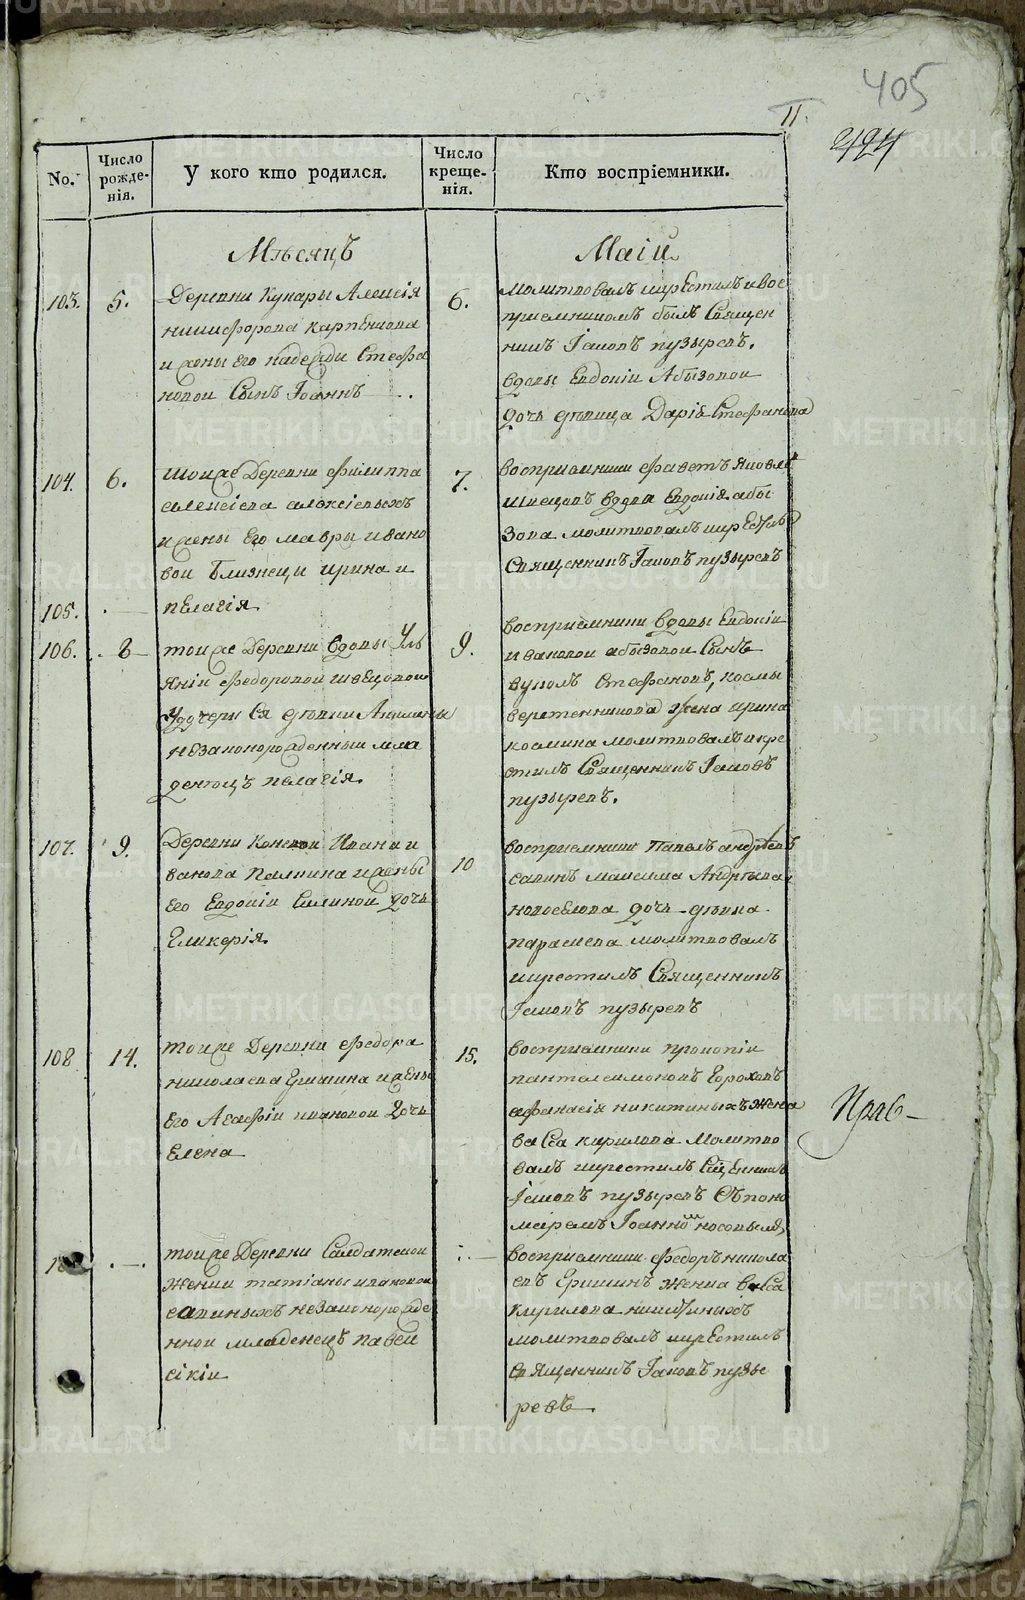 405
II.
424
No.
Число рожде-нія.
У кого кто родился.
Число креще-нія.
Кто воспріемники.
Мѣсяцъ
Маій
103.
5.
Деревни Кунары Алексія
никифорова карпенкова
и жены его надежди Стефа
новои Сынъ Іоаннъ
6.
молитвовалъ икрестилъ и вос
приемникомъ былъ Священ
никъ Іаковъ пузыревъ.
вдовы Евдокіи Абызовои
дочь дѣвица Дарія Стефанова
104.
6.
тоиже Деревни филиппа
алексіева алексіевыхъ
и жены его мавры ивано
вои близнецы ирина и
105.
пелагія
7.
восприемники
вдова Евдокія абы
зова молитвовалъ икрестилъ
Священникъ Іаковъ пузыревъ
106.
8
тоиже Деревни вдовы Уль
яніи федоровои швецовои
удочери ея дѣвки Акилины
незаконорожденныи мла
денецъ пелагія.
9.
восприемники вдовы Евдокіи
ивановои абызовои Сынъ
вуколъ Стефановъ, космы
веретенникова жена ирина
космина молитвовалъ икре
стилъ Священникъ Іаковъ
пузыревъ.
107.
9.
Деревни Коневои Ивана и
ванова Палкина ижены
его Евдокіи Силинои дочь
Гликерія.
10
восприемники Павелъ андреевъ
савинъ максима Андреева
новоселова дочь дѣвка
параскева молитвовалъ
икрестилъ Священникъ
Іаковъ пузыревъ
108
14.
тоиже Деревни федора
николаева Еркина ижены
его Агафіи ивановои Дочь
Елена
15.
восприемники прокопіи
пантелеимоновъ Гороховъ
афанасія никитиныхъ жена
васса кирилова молитво
валъ икрестилъ Сщенникъ
Іаковъ пузыревъ Съпоно
маремъ Іоанномъ носовымъ
тоиже Деревни Салдатскои
женки татіаны ивановои
савиныхъ незаконорожде
ннои младенецъ паве
сікіи
восприемники федоръ никола
евъ Еркинъ жена васса
кирилова никитиныхъ
молитвовалъ икрестилъ
священникъ Іаковъ пузы
ревъ
METRIKI.GASO-URAL.RU